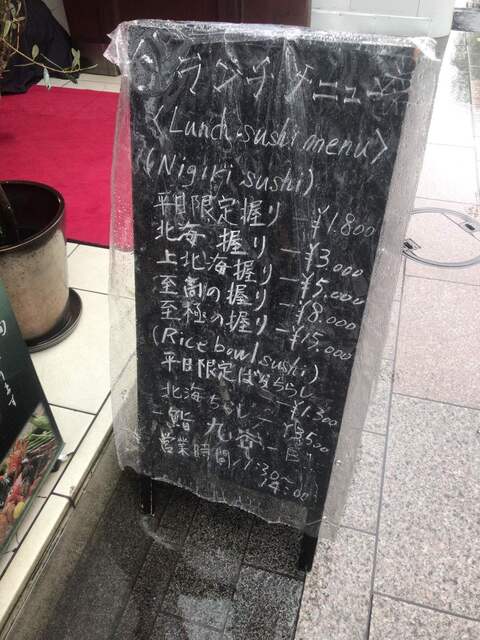 ランチメニュー
〈Lunch sushi menu〉
(Nigiri sushi)
平日限定握り－¥1.800
北海 握り－¥3.000
上北海握り－¥5.000
至高の握り－¥8.000
至極の握り－¥15.000
(Rice bowl sushi)
平日限定ばらちらし
¥1.300
北海ちらし－¥3500
－鮨 九
営業時間 11:30～
14:00